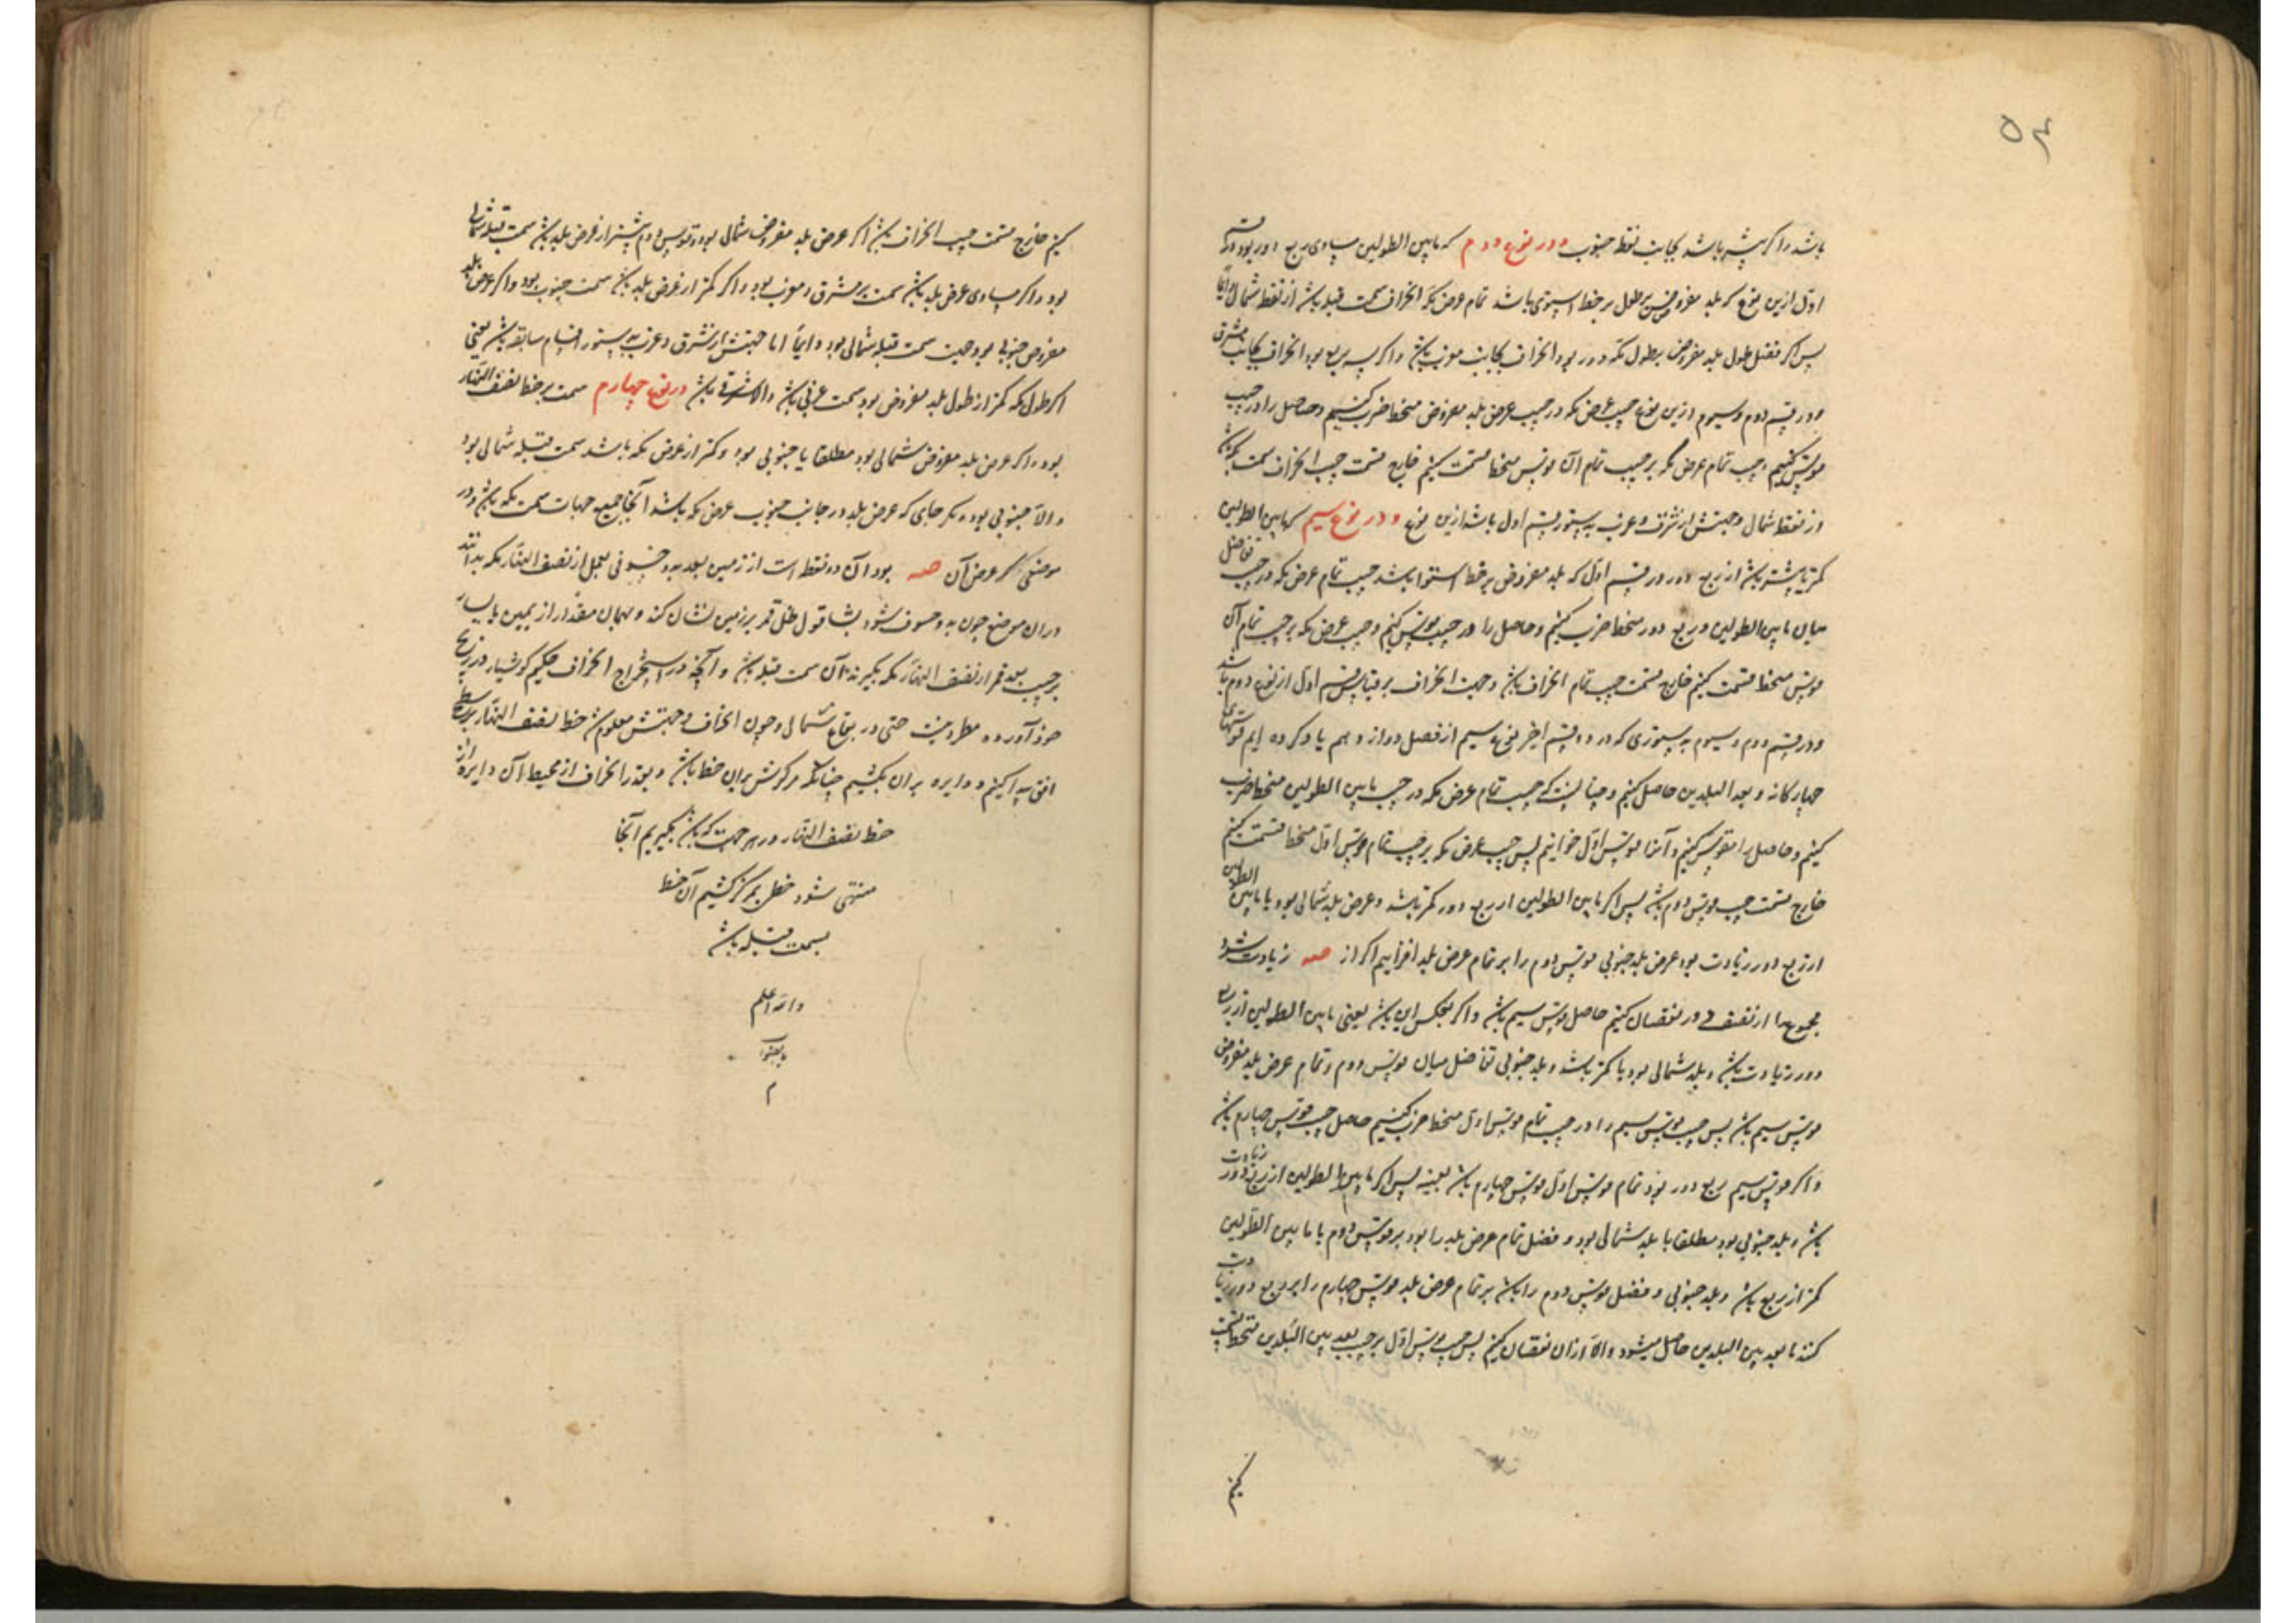 ۵۴
باشد و اگر بیشتر باشد بجانب نقطه جنوب و در نوع دوم که مابین الطولین مساوی ربع دور بود در قسم
اول ازین نوع که بلد مفروض بر خط استوی باشد تمام عرض مکه انحراف سمت قبله باشد از نقطه شمال دایماً
پس اگر فضل طول بلد مفروض بر طول مکه دور بود انحراف بجانب مغرب باشد و اگر سه ربع بود انحراف بجانب مشرق
و در قسم دوم و سیوم ازین نوع جیب عرض مکه در جیب عرض بلد مفروض منحطا ضرب کنیم و حاصل را در جیب
مقوس کنیم و جیب تمام عرض مکه بر جیب تمام آن قوس منحطا قسمت کنیم خارج قسمت جیب انحراف سمت مکه باشد
از نقطه شمال و جهتش از شرق و غرب به دستور قسم اول باشد ازین نوع و در نوع سیم که مابین الطولین
کمتر یا بیشتر باشد از ربع دور در قسم اول که بلد مفروض بر خط استوا باشد جیب تمام عرض مکه در جیب تفاضل
میان مابین الطولین و ربع دور منحطا ضرب کنیم و حاصل را در جیب مقوس کنیم و جیب عرض مکه بر جیب تمام آن
قوس منحطا قسمت کنیم خارج قسمت جیب تمام انحراف باشد و جهت انحراف بر قیاس قسم اول از نوع دوم باشد
و در قسم دوم و سیوم به دستوری که در دو قسم اخیر نوع سیم از فصل دوازدهم یاد کرده ایم قوسهای
چهارگانه و بعد البلدین حاصل کنیم و چنانست که جیب تمام عرض مکه در جیب مابین الطولین منحطا ضرب
کنیم و حاصل را مقوس کنیم و آنرا قوس اول خوانیم پس جیب عرض مکه بر جیب تمام قوس اول منحطا قسمت کنیم
خارج قسمت جیب قوس دوم باشد پس اگر مابین الطولین از ربع دور کمتر باشد و عرض بلد شمالی بود یا مابین الطولین
از ربع دور زیادت بود و عرض بلد جنوبی قوس دوم را بر تمام عرض بلد افزاییم اگر از صه زیادت شود
مجموع را از نصف دور نقصان کنیم حاصل قوس سیم باشد و اگر بعکس این باشد یعنی مابین الطولین از ربع
دور زیادت باشد و بلد شمالی بود یا کمتر باشد و بلد جنوبی تفاضل میان قوس دوم و تمام عرض بلد مفروض
قوس سیم باشد پس جیب قوس سیم را در جیب تمام قوس اول منحطا ضرب کنیم حاصل جیب قوس چهارم باشد
و اگر قوس سیم ربع دور بود تمام قوس اول قوس چهارم باشد بعینه پس اگر مابین الطولین از ربع دور زیادت
باشد و بلد جنوبی بود مطلقا یا بلد شمالی بود و فضل تمام عرض بلد را بود بر قوس دوم یا مابین الطولین
کمتر از ربع باشد و بلد جنوبی و فضل قوس دوم را باشد بر تمام عرض بلد قوس چهارم را بر ربع دور زیادت
کنند تا بعد بین البلدین حاصل میشود و الا از ان نقصان کنیم پس جیب قوس اول بر جیب بعد بین البلدین منحطا قسمت
کنیم
کنیم خارج قسمت جیب انحراف باشد اگر عرض بلد مفروض شمالی بود و قوس دوم بیشتر از عرض بلد باشد سمت قبله شمالی
بود و اگر مساوی عرض بلد باشد سمت بر مشرق و مغرب بود و اگر کمتر از عرض بلد باشد سمت جنوب بود و اگر عرض بلد
مفروض جنوبی بود جهت سمت قبله شمالی بود دایماً اما جهتش از شرق و غرب به دستور اقسام سابقه باشد یعنی
اگر طول مکه کمتر از طول بلد مفروض بود سمت غربی باشد والا شرقی باشد در نوع چهارم سمت بر خط نصف النهار
بود و اگر عرض بلد مفروض شمالی بود مطلقا یا جنوبی بود و کمتر از عرض مکه باشد سمت قبله شمالی بود
و الا جنوبی بود مگر جای که عرض بلد در جانب جنوب عرض مکه باشد آنجا جمیع جهات سمت مکه باشد و در
موضعی که عرض آن صه بود آن دو نقطه است از زمین بعد بدو خسوفی بعمل از نصف النهار مکه بدانند
در ان موضع چون بدو خسوف شود بشاقول ظل قمر بر زمین نشان کند و بهمان مقدار از یمین یا یسار
بر حسب بعد قمر از نصف النهار مکه بگیرند آن سمت قبله باشد و آنچه در استخراج انحراف حکیم کوشیار در زیج
خود آورده مطرد نیست حتی در بقاع شمالی و چون انحراف و جهتش معلوم شد خط نصف النهار بر بسیط
افق پیدا کنیم و دایره بران بکشیم چنانکه مرکزش بران خط باشد و بقدر انحراف از محیط آن دایره از
خط نصف النهار در هر جهت که باشد بگیریم آنجا
منتهی شود خطی بمرکز کشیم آن خط
سمت قبله باشد
والله اعلم
بالصواب
م